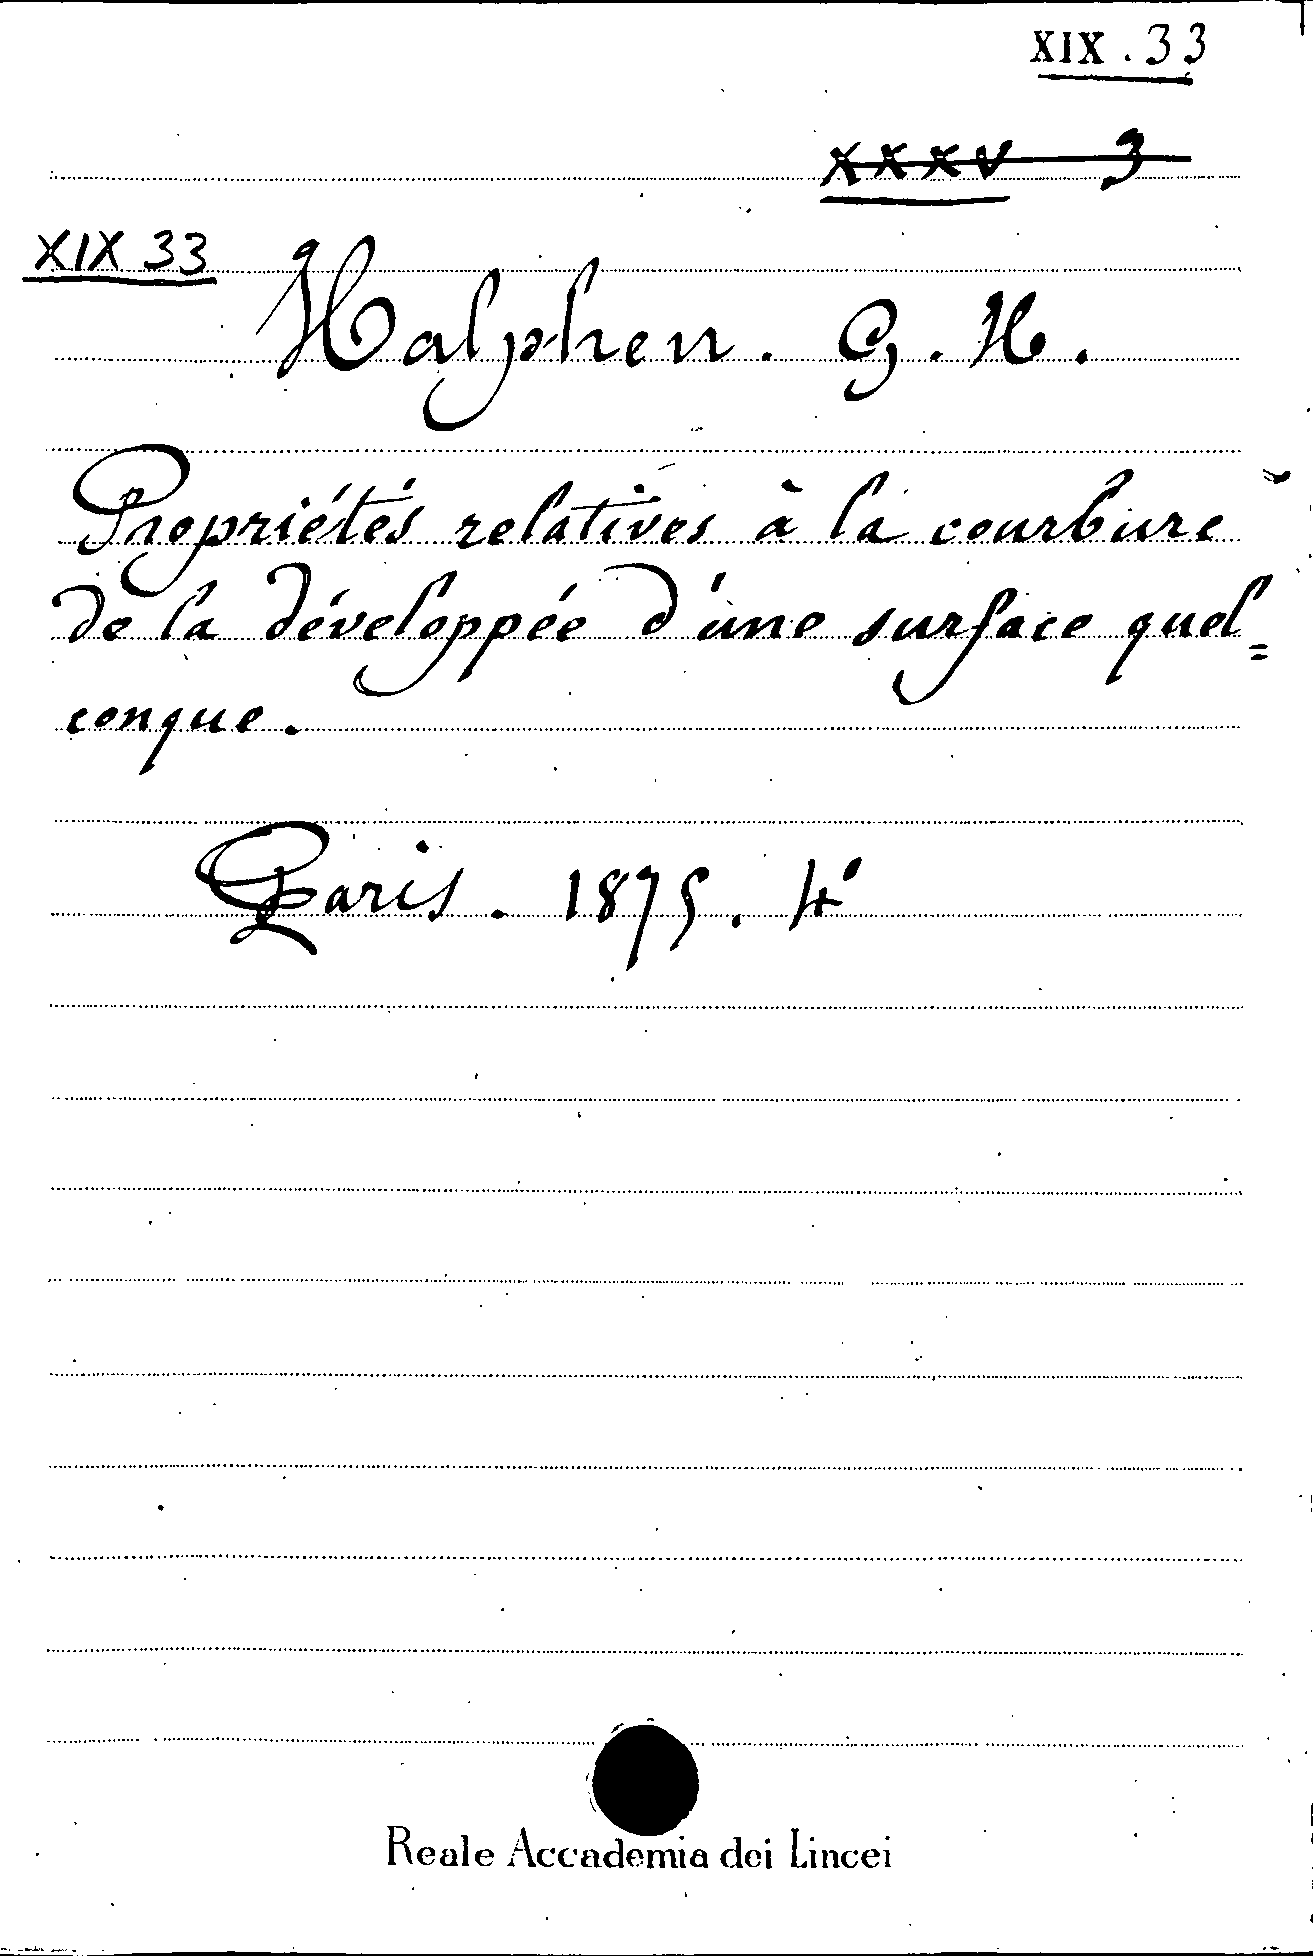 XIX . 33
XXXV 3
XIX 33
Halphen . G . H .
Propriétés relatives à la courbure
de la développée d'une surface quel=
conque .
Paris . 1875 . 4°
Reale Accademia dei Lincei